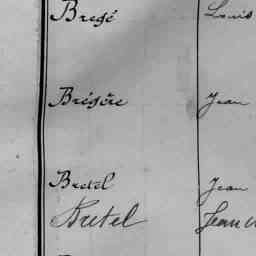 Bregé Louis
Brégère Jean
Bretel Jean
Bretel Jean